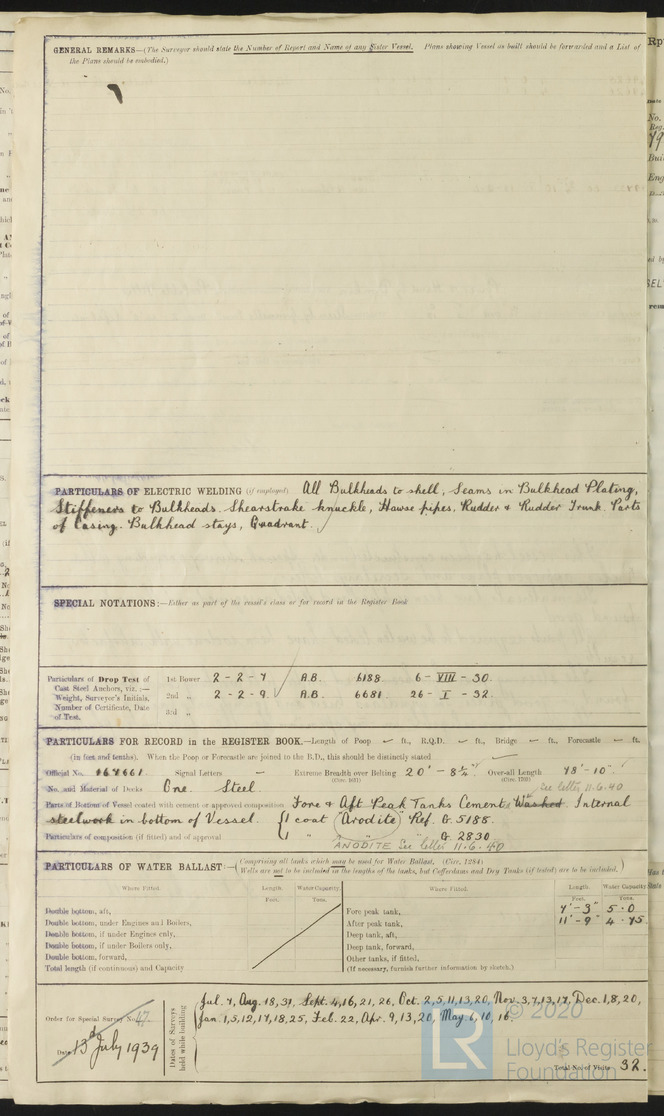 GENERAL REMARKS—(The Surveyor should state the Number of Report and Name of any Sister Vessel. Plans showing Vessel as built should be forwarded and a List of
the Plans should be embodied.)
PARTICULARS OF ELECTRIC WELDING (if employed) All Bulkheads to shell, Seams in Bulkhead Plating,
Stiffeners to Bulkheads. Shearstrake knuckle, Hawse pipes, Rudder & Rudder Trunk. Parts
of Casing. Bulkhead stays, Quadrant.
SPECIAL NOTATIONS:—Either as part of the vessel's class or for record in the Register Book
Particulars of Drop Test of
Cast Steel Anchors, viz.:—
Weight, Surveyor's Initials,
Number of Certificate, Date
of Test.
1st Bower 2 - 2 - 7 A.B. 6188 6 - VIII - 30.
2nd „ 2 - 2 - 9. A.B. 6681 26 - I - 32.
3rd „
PARTICULARS FOR RECORD in the REGISTER BOOK.—Length of Poop ft., R.Q.D. ft., Bridge ft., Forecastle ft.
(in feet and tenths). When the Poop or Forecastle are joined to the B.D., this should be distinctly stated
Official No. 167661 Signal Letters – Extreme Breadth over Belting 20' - 8¼" Over-all Length 78' - 10"
(Circ. 1611) (Circ. 1703)
See letter 11.6.40
No. and Material of Decks One. Steel.
Parts of Bottom of Vessel coated with cement or approved composition Fore & Aft Peak Tanks Cement Washed. Internal
steelwork in bottom of Vessel. 1 coat "Arodite" Ref. G. 5188.
Particulars of composition (if fitted) and of approval 1 " " G 2830
ANODITE See letter 11.6.40
PARTICULARS OF WATER BALLAST:—(Comprising all tanks which may be used for Water Ballast, (Circ. 1284)
Wells are not to be included in the lengths of the tanks, but Cofferdams and Dry Tanks (if tested) are to be included.)
Where Fitted. Length. Water Capacity. Where Fitted. Length. Water Capacity
Feet. Tons. Feet. Tons.
Double bottom, aft, Fore peak tank, 7' - 3" 5 · 0
Double bottom, under Engines and Boilers, After peak tank, 11' - 9" 4 · 75
Double bottom, if under Engines only, Deep tank, aft,
Double bottom, if under Boilers only, Deep tank, forward,
Double bottom, forward, Other tanks, if fitted,
Total length (if continuous) and Capacity (If necessary, furnish further information by sketch.)
Order for Special Survey No. 47.
Date 13th July 1939
Dates of Surveys
held while building
Jul. 7, Aug. 18, 31, Sept. 4, 16, 21, 26, Oct. 2, 5, 11, 13, 20, Nov. 3, 7, 13, 17, Dec. 1, 8, 20,
Jan. 1, 5, 12, 17, 18, 25, Feb. 22, Apr. 9, 13, 20, May. 6, 10, 16.
© 2020
LR
Lloyd's Register
Foundation
Total No. of Visits 32.